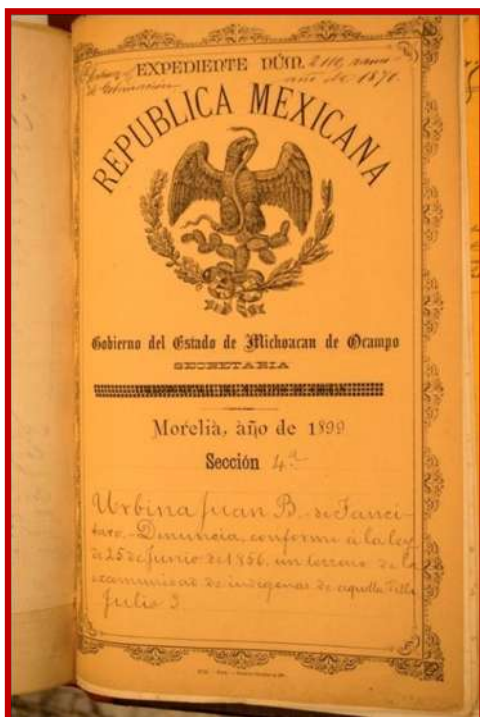 EXPEDIENTE NÚM. 2110, ramo
de Gobernación año de 1870.
REPUBLICA MEXICANA
Gobierno del Estado de Michoacan de Ocampo
SECRETARIA
Morelia, año de 1899
Sección 4ª
Urbina Juan B. de Tanci-
taro.- Denuncia, conforme á la ley
de 25 de Junio de 1856, un terreno de la
excomunidad de indígenas de aquella Villa
Julio 3.